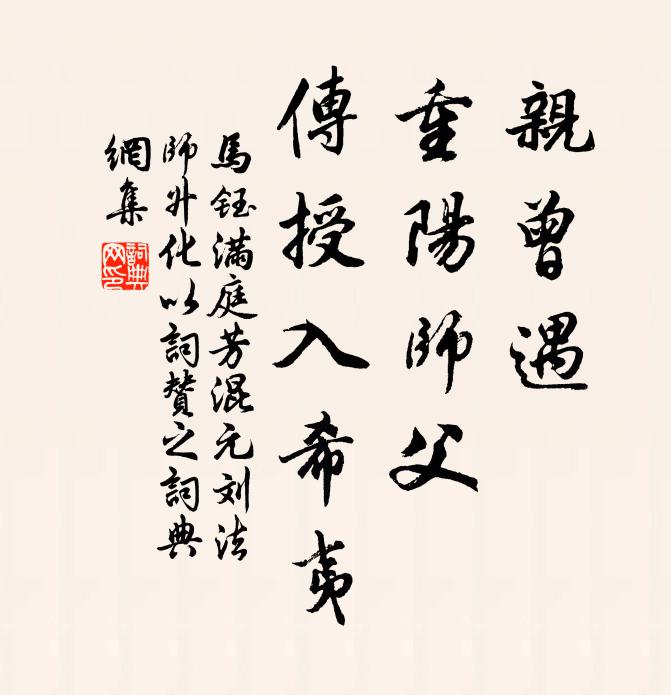 親曾遇
重陽師父
傳授入希夷
馬鈺滿庭芳混元刘法
師升化以詞贊之詞典
網集
詞典網印